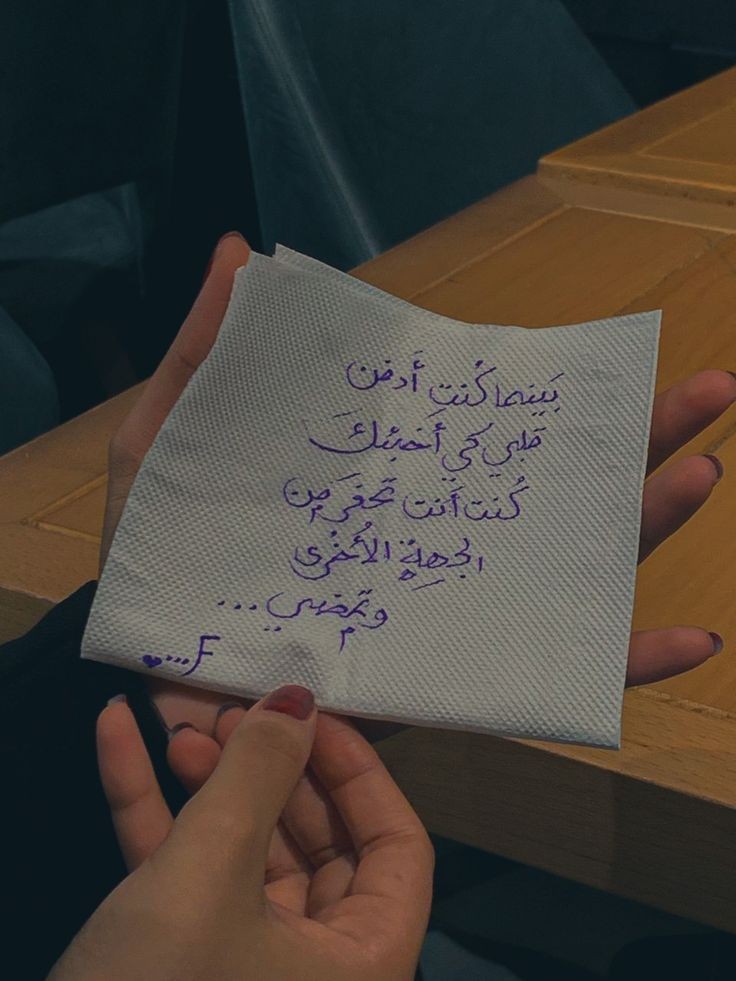 بَينما كُنت أَدفن
قلبي كي أَخبئكَ
كُنت أَنت تحفرَ من
الجهةِ الأُخرى
وتمضي ...
F...♥